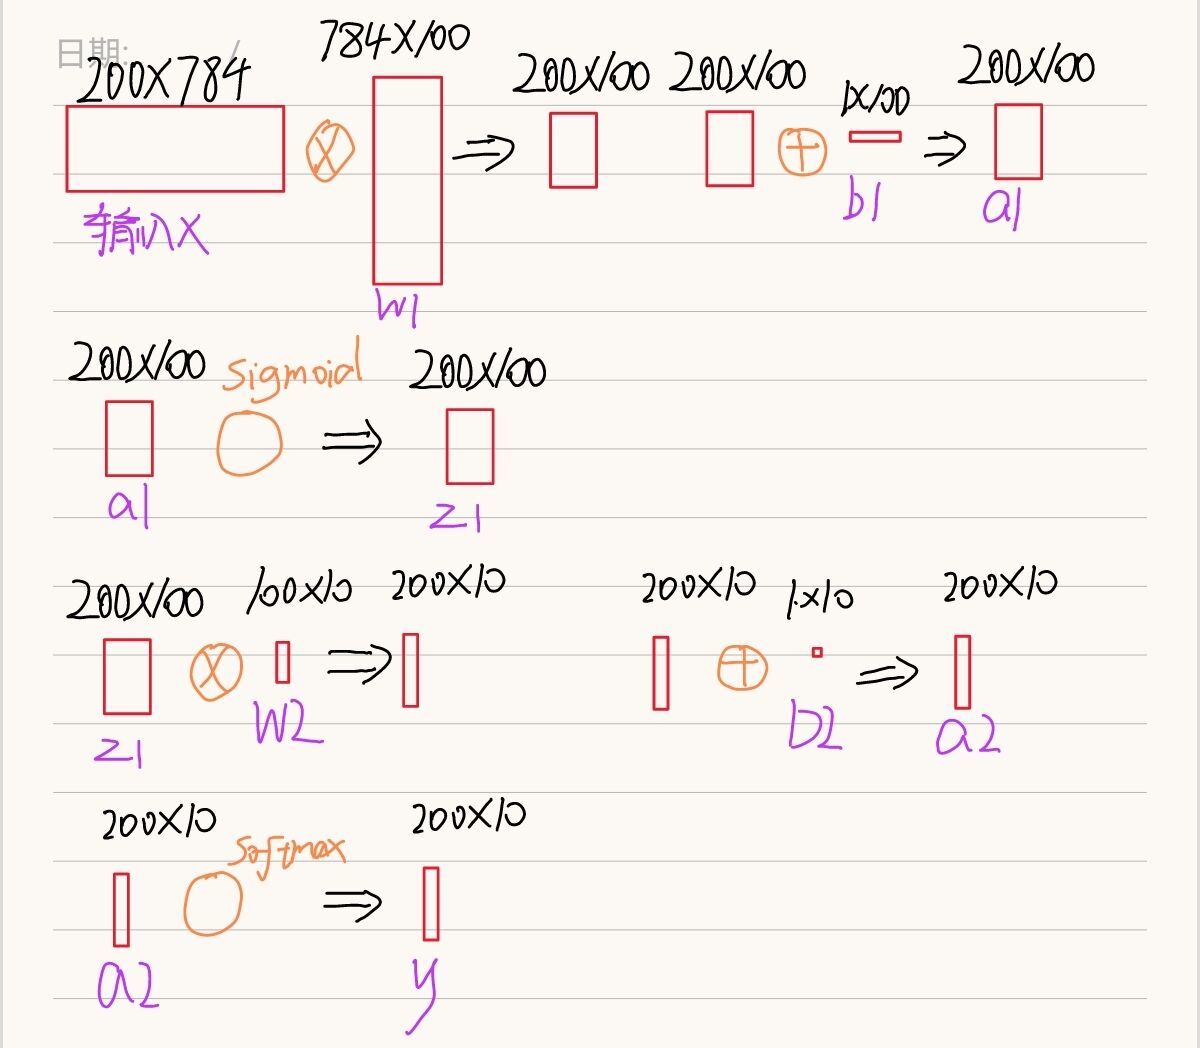 日期: /
200X784 784X100 200X100 200X100 1X100 200X100
输入X W1 b1 a1
200X100 Sigmoid 200X100
a1 z1
200X100 100X10 200X10 200X10 1X10 200X10
z1 W2 b2 a2
200X10 Softmax 200X10
a2 y